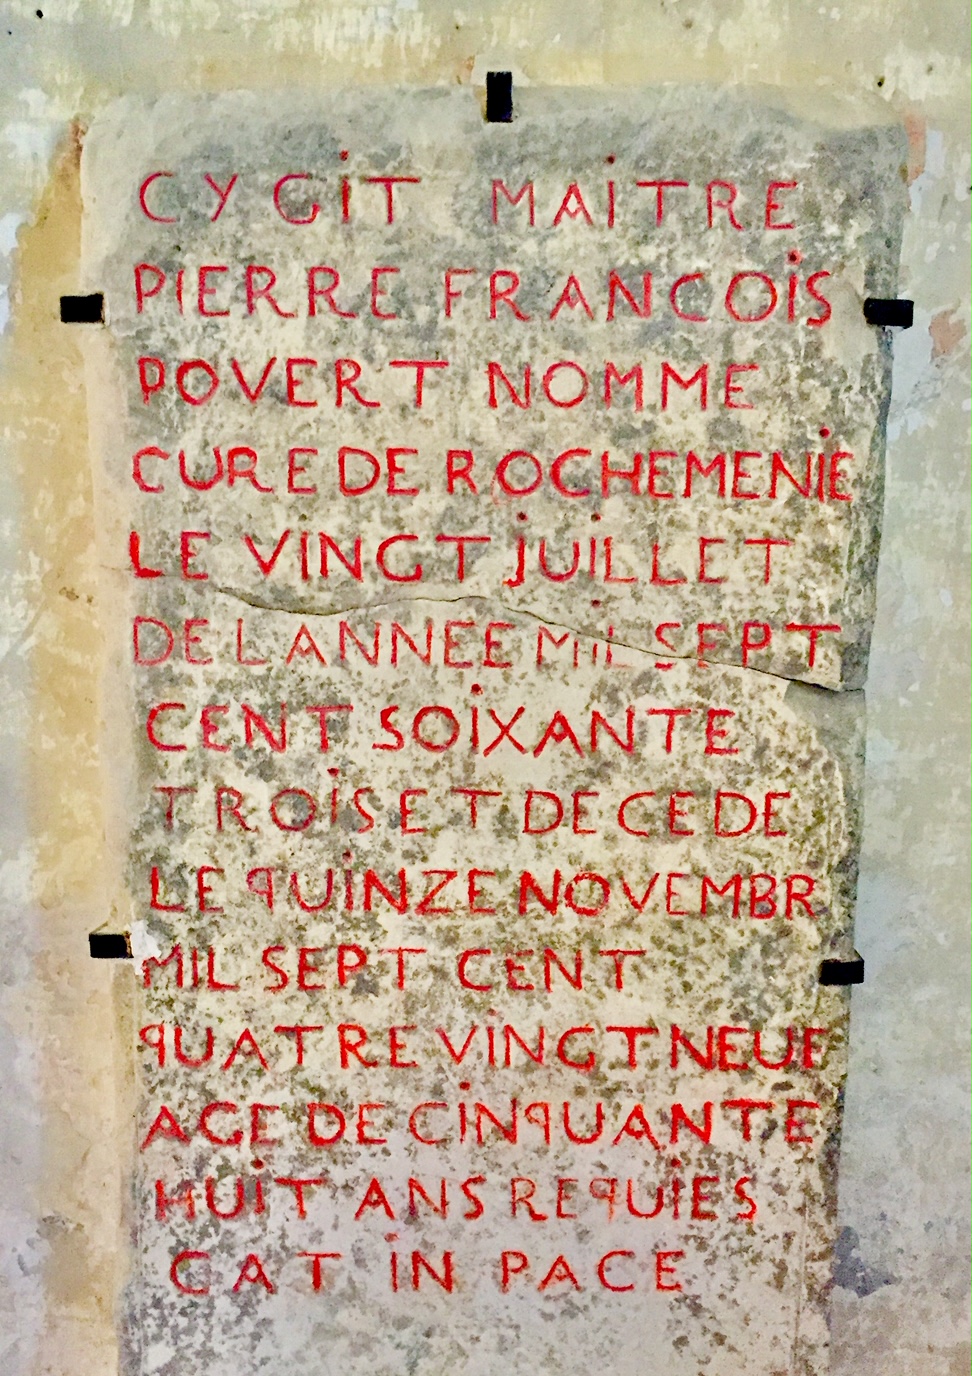 CY GiT MAiTRE
PIERRE FRANCOiS
POVERT NOMME
CURE DE ROCHEMENiE
LE VINGT JUiLLET
DE LANNEE MiL SEPT
CENT SOiXANTE
TROiS ET DECEDE
LE qUiNZE NOVEMBR
MIL SEPT CENT
qUATRE ViNGT NEUF
AGE DE CiNqUANTE
HUiT ANS REqUiES
CAT iN PACE